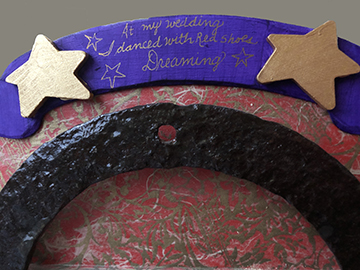 At my wedding
I danced with Red shoes
Dreaming